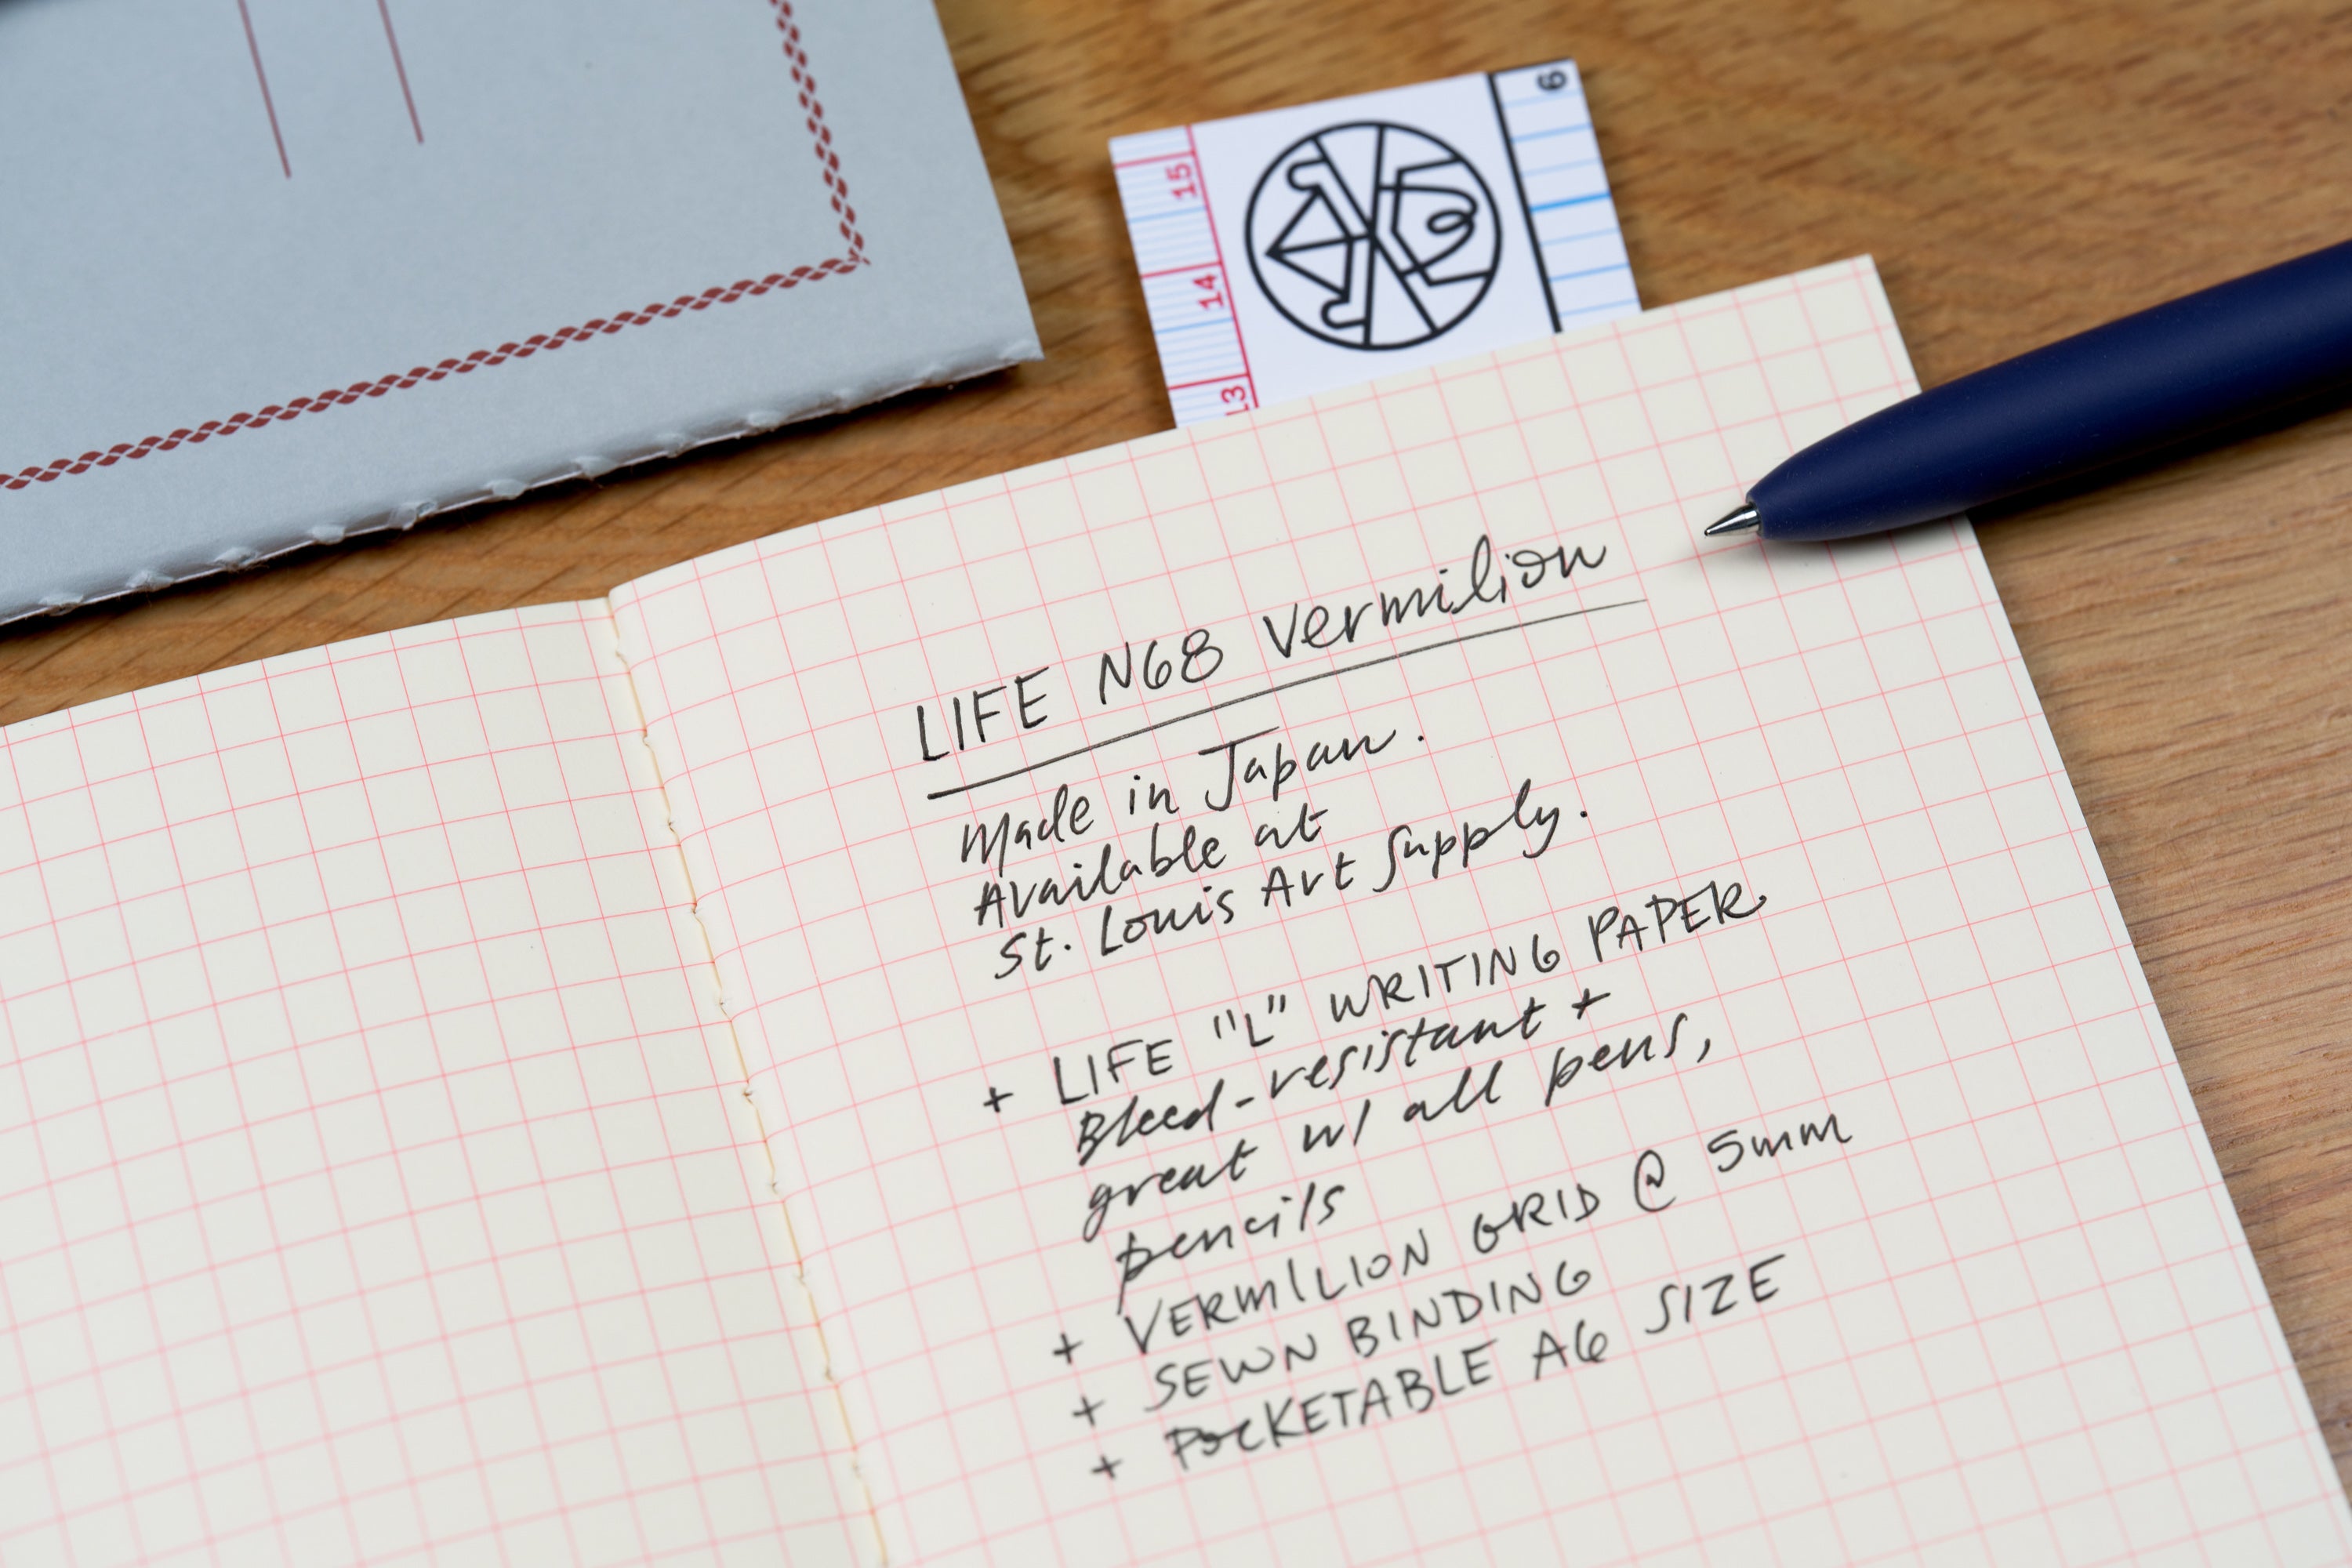 15
14
13
6
LIFE N68 Vermilion
Made in Japan.
Available at
St. Louis Art Supply.
+ LIFE "L" WRITING PAPER
Bleed-resistant +
great w/ all pens,
pencils
+ VERMILION GRID @ 5mm
+ SEWN BINDING
+ POCKETABLE A6 SIZE